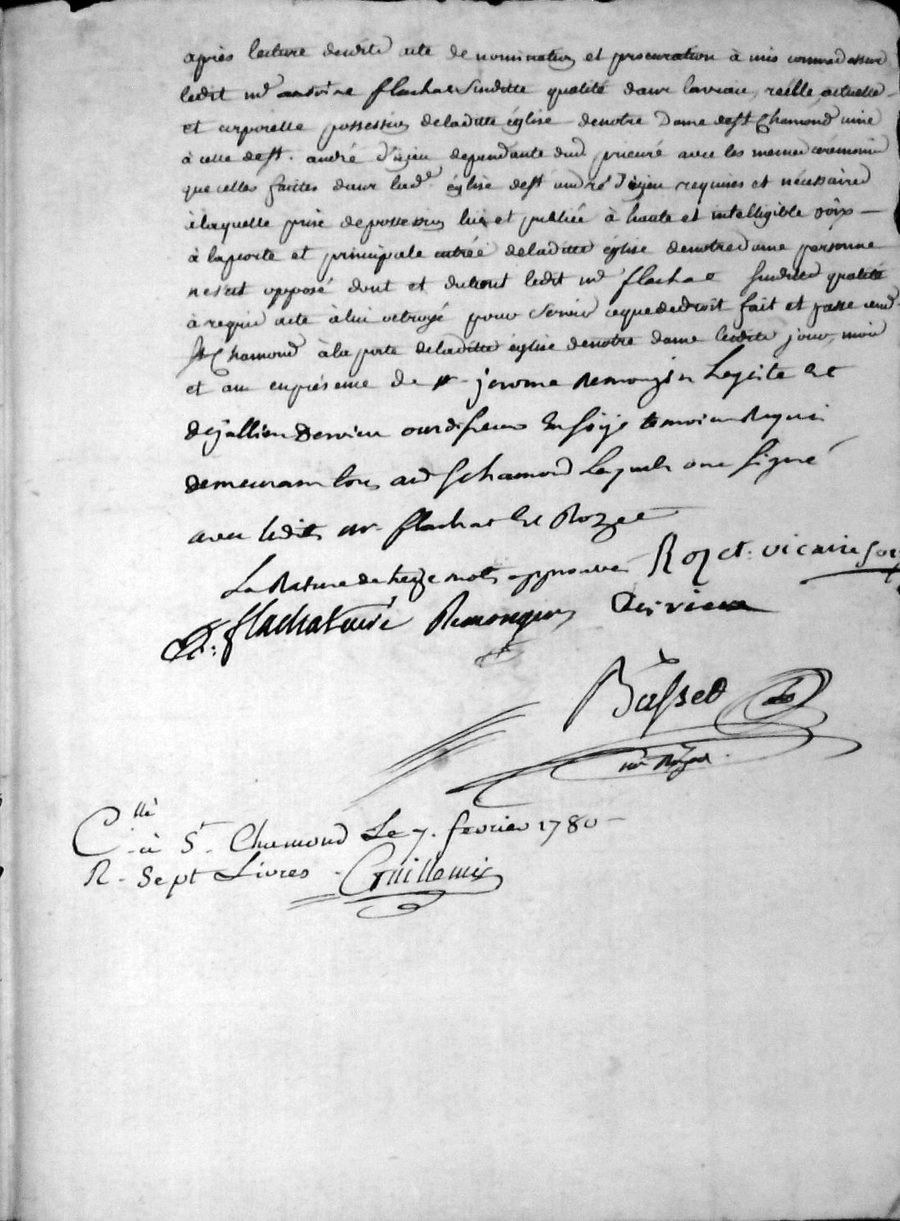 après lecture desdits acte de nomination et procuration à mis comme dessus
ledit mr antoine flachat susditte qualité dans la vraie, réelle, actuelle
et corporelle possession de laditte église de notre Dame de st Chamond unie
à celle de st. andré d'izieu dependante dud. prieuré avec les memes ceremonies
que celles faittes dans lade église de st andré d'izieu requises et nécessaires
à laquelle prise de possession lue et publiée à haute et intelligible voix —
à la porte et principale entrée de laditte église de notre dame personne
ne s'est opposé dont et du tout ledit mr flachat susdite qualité
à requis acte à lui octroyé pour servir ce que de droit fait et passé aud.
St Chamond à la porte de laditte église de notre dame lesdits jour, mois
et an en présence de sr jerome Remongin et
de Dervieu ourdisseur En soye temoins Requis
demeurants tous aud St Chamond Lesquels ont signé
avec ledit mr flachat Et Rozet
La Rature de treize mots approuvée Rozet vicaire
flachat curé Remongin Dervieux
Basset
nre Royal
Cllé à St Chamond Le 7. fevrier 1780 —
R - Sept Livres - Guillemin